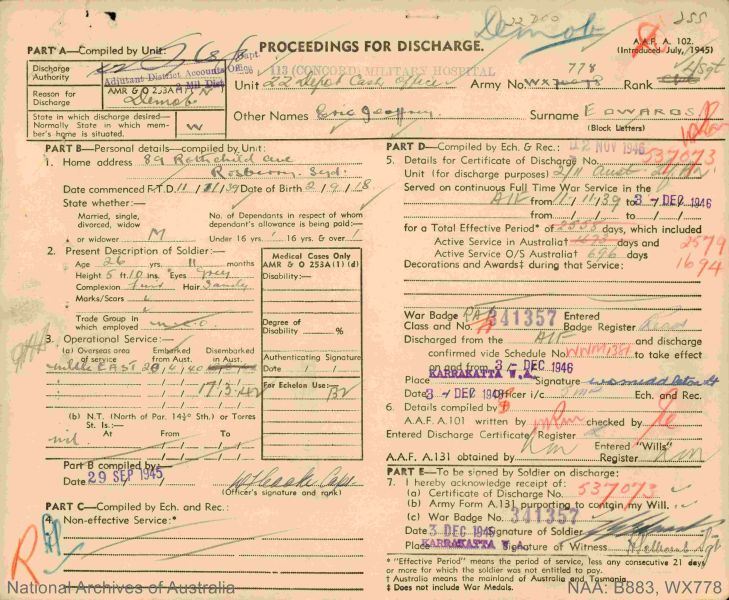 Demob
255
PART A—Compiled by Unit:
PROCEEDINGS FOR DISCHARGE.
A.A.F. A. 102.
(Introduced July, 1945)
Discharge Authority
Adjutant District Accounts Office
AMR & O 253A
113 (CONCORD) MILITARY HOSPITAL
Unit 22 Depot Cash Office
Army No. WX 778
Rank A/Sgt
Reason for Discharge
Demob
State in which discharge desired—
Normally State in which mem-
ber's home is situated.
W
Other Names Eric Geoffrey
Surname EDWARDS
(Block Letters)
PART B—Personal details—compiled by Unit:
1. Home address 89 Rothchild Ave
Rosberry. Syd.
Date commenced F.T.D. 11/11/39 Date of Birth 2/9/18.
State whether:—
Married, single, divorced, widow or widower M
No. of Dependants in respect of whom dependant's allowance is being paid:—
Under 16 yrs. 16 yrs. & over
2. Present Description of Soldier:—
Age 26 yrs. 11 months
Height 5 ft. 10 ins. Eyes Grey
Complexion Hair Sandy
Marks/Scars
Trade Group in which employed
Medical Cases Only
AMR & O 253A(1) (d)
Disability:—
Degree of Disability %
Authenticating Signature
Date / /
For Echelon Use:—
3. Operational Service:—
(a) Overseas area of service
Embarked from Aust.
Disembarked in Aust.
Middle EAST 20/4/40
17/3/42
(b) N.T. (North of Par. 14½° Sth.) or Torres St. Is.:—
At From To
nil
Part B compiled by:—
Date 29 SEP 1945
Capt.
(Officer's signature and rank)
PART C—Compiled by Ech. and Rec.:
4. Non-effective Service:*
R
PART D—Compiled by Ech. & Rec.:
12 NOV 1946
5. Details for Certificate of Discharge No. 537073
Unit (for discharge purposes) 2/11 Aust. Inf Bn
Served on continuous Full Time War Service in the
AIF from 11/11/39 to 3 - DEC 1946
from / / to / /
for a Total Effective Period* of days, which included
2579
Active Service in Australia† days and
1694
Active Service O/S Australia† 696 days
Decorations and Awards‡ during that Service:
War Badge Class and No. A 341357
Entered Badge Register
Discharged from the AIF and discharge
confirmed vide Schedule No. WNM1351 to take effect
on and from 3 - DEC 1946
KARRAKATTA W.A.
Place Signature
Date 3 - DEC 1946 Officer i/c Ech. and Rec.
6. Details compiled by
A.A.F. A.101 written by checked by
Entered Discharge Certificate Register
A.A.F. A.131 obtained by Entered "Wills" Register
PART E—To be signed by Soldier on discharge:
7. I hereby acknowledge receipt of:
(a) Certificate of Discharge No. 537073
(b) Army Form A.131 purporting to contain my Will.
(c) War Badge No. 341357
Date 3 DEC 1946 Signature of Soldier
KARRAKATTA W.A.
Place Signature of Witness Sgt
* "Effective Period" means the period of service, less any consecutive 21 days or more for which the soldier was not entitled to pay.
† Australia means the mainland of Australia and Tasmania.
‡ Does not include War Medals.
National Archives of Australia
NAA: B883, WX778